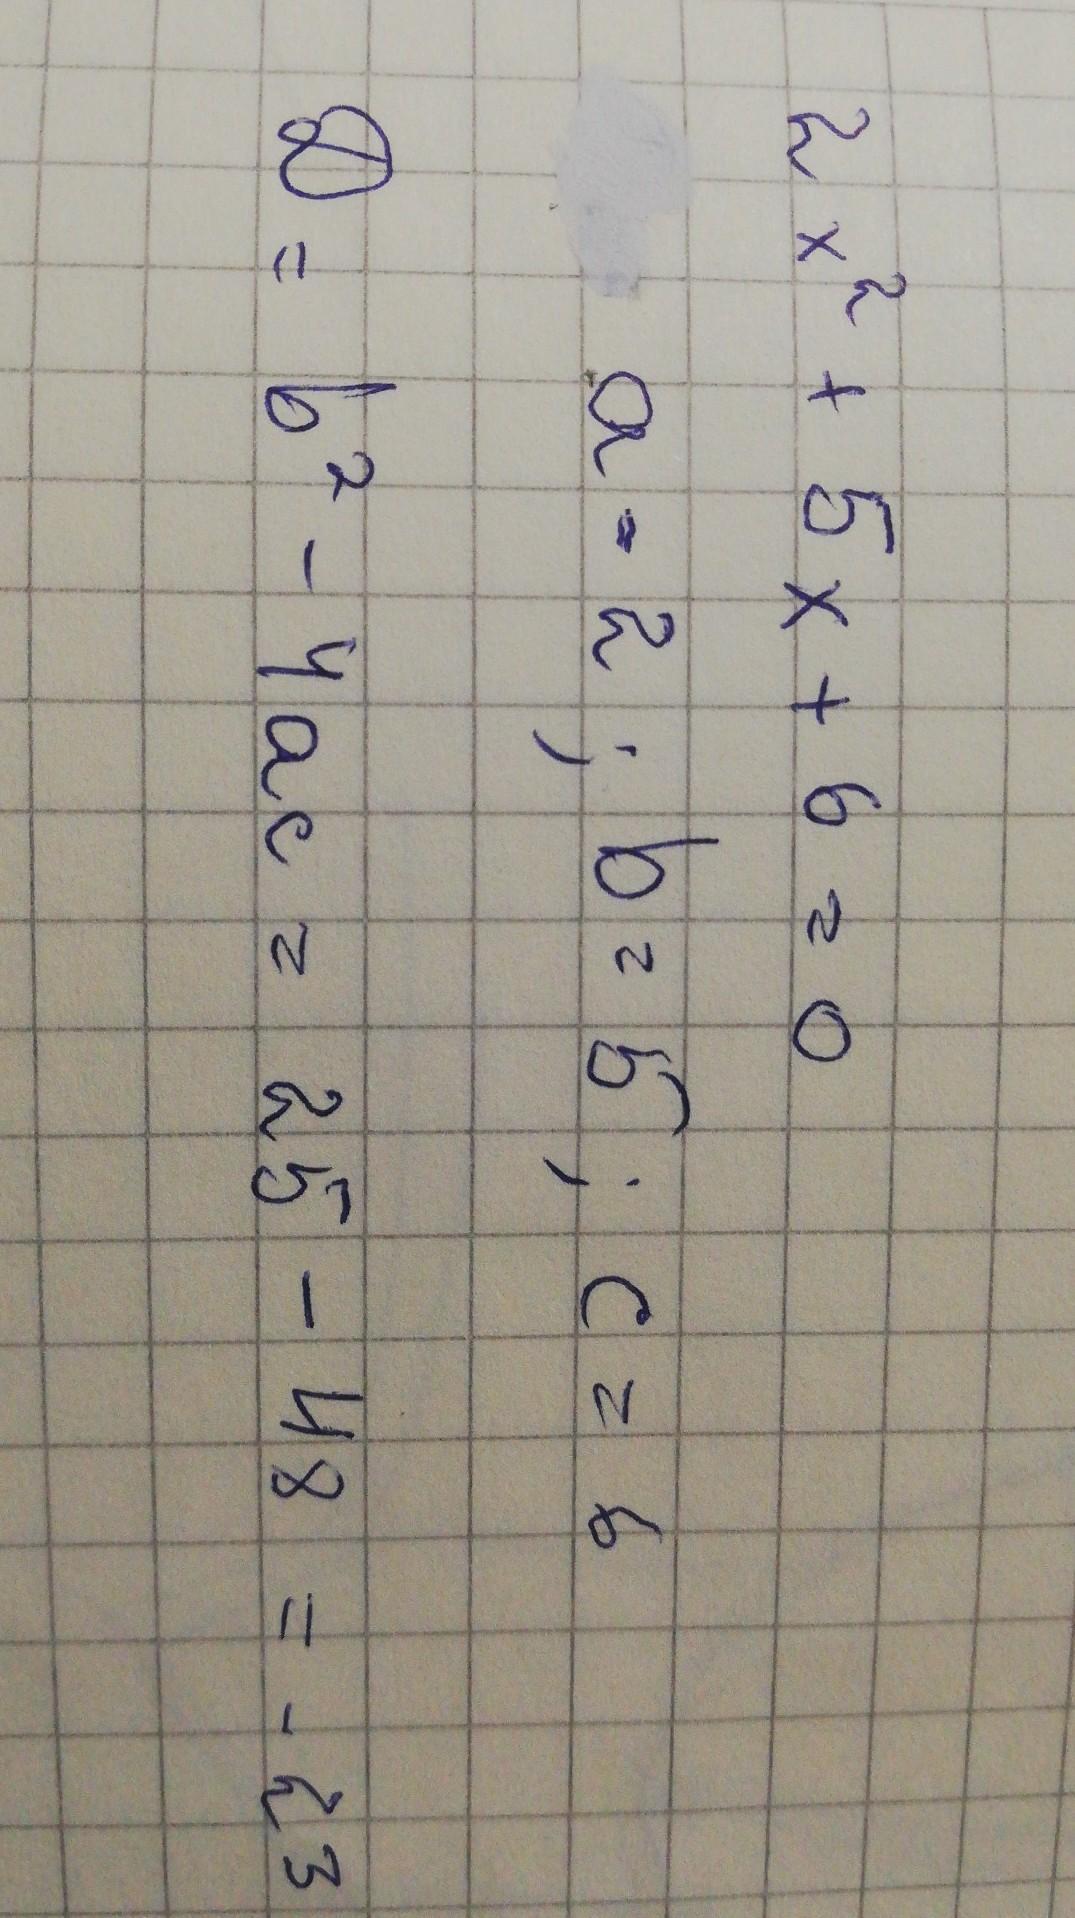 2x² + 5x + 6 = 0
a = 2 ; b = 5 ; c = 6
D = b² - 4ac = 25 - 48 = -23